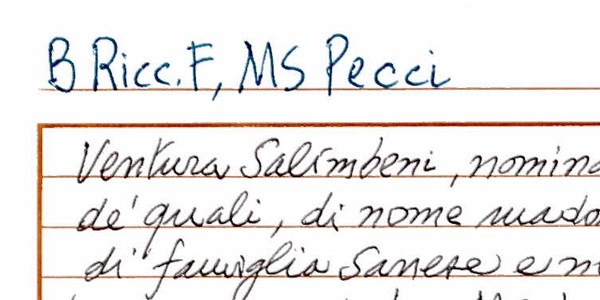 B Ricc. F, MS Pecci
Ventura Salimbeni, nomina
de' quali, di nome mado
di famiglia Sanese e m